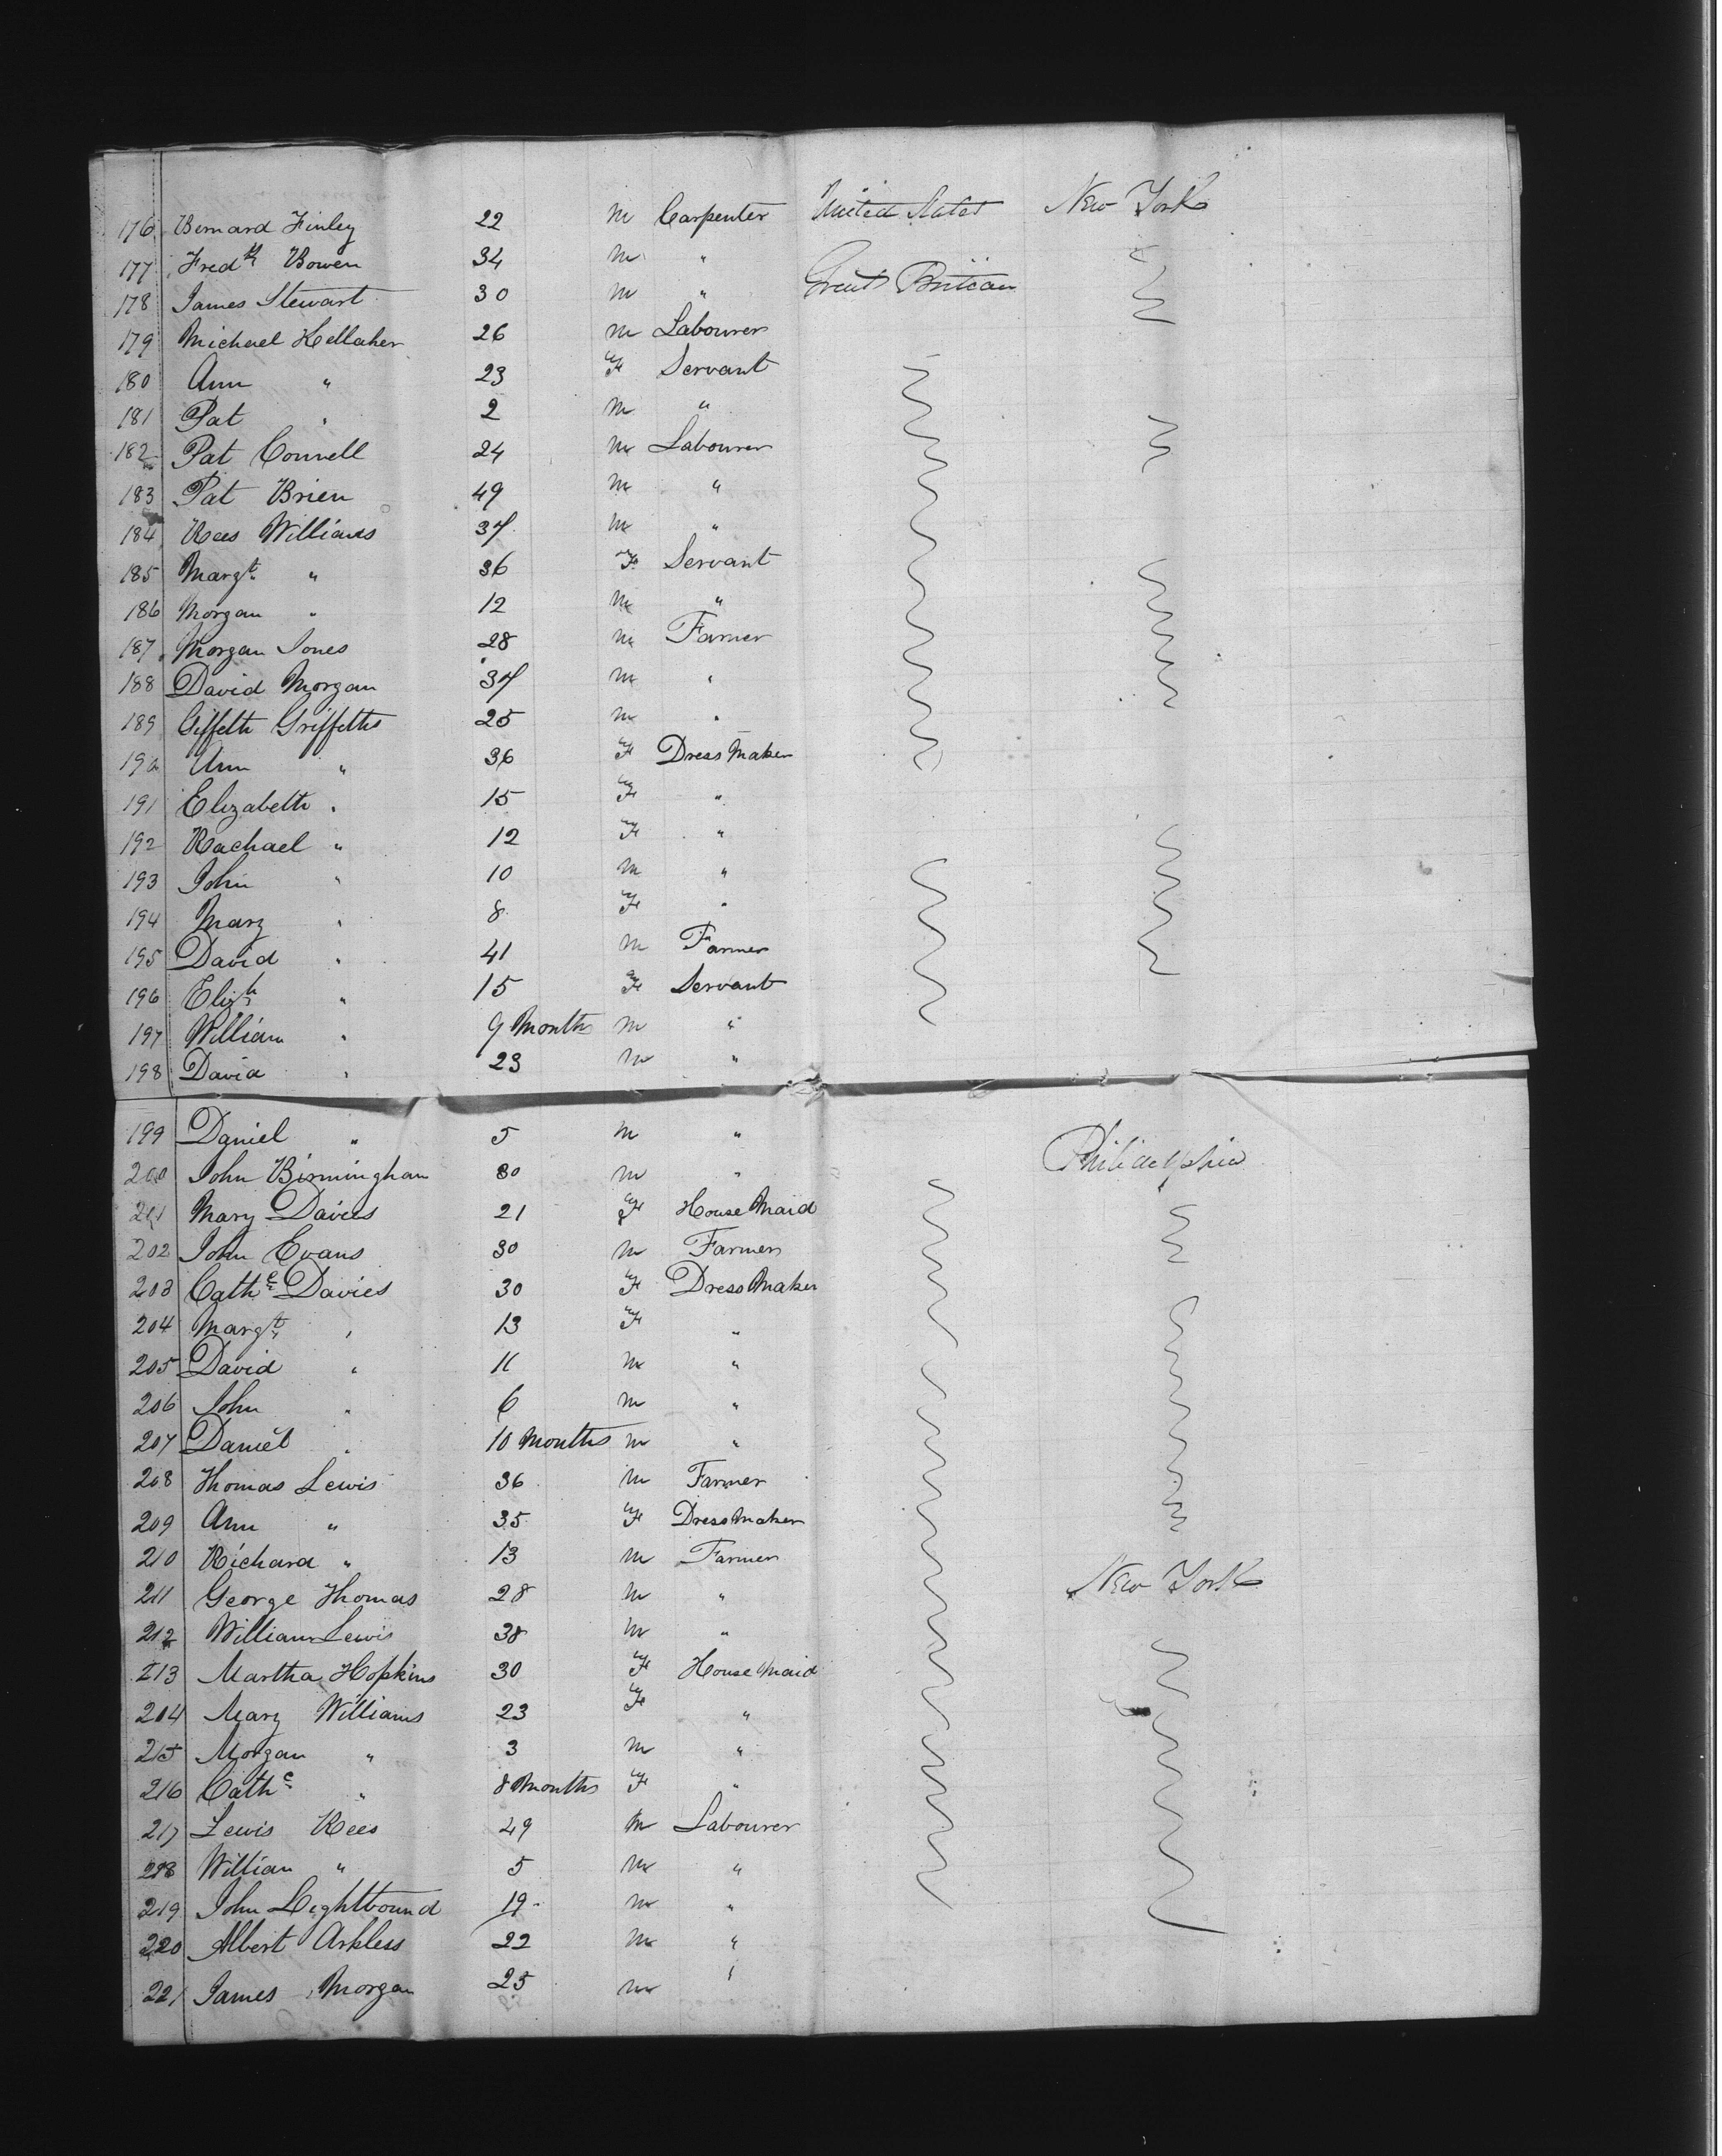 176 Bernard Finley 22 m Carpenter United States New York
177 Fredk Bowen 34 m "
178 James Stewart 30 m " Great Britain
179 Michael Kellaher 26 m Labourer
180 Ann " 23 F Servant
181 Pat " 2 m "
182 Pat Connell 24 m Labourer
183 Pat Brien 49 m "
184 Rees Williams 37 m "
185 Margt " 36 F Servant
186 Morgan " 12 m "
187 Morgan Jones 28 m Farmer
188 David Morgan 37 m "
189 Giffeth Griffeths 25 m "
190 Ann " 36 F Dress Maker
191 Elizabeth " 15 F "
192 Rachael " 12 F "
193 John " 10 m "
194 Mary " 8 F "
195 David " 41 m Farmer
196 Elizh " 15 F Servant
197 William " 9 Months m "
198 David " 23 m "
199 Daniel " 5 m "
200 John Birmingham 30 m " Philidelphia
201 Mary Davies 21 F House Maid
202 John Evans 30 m Farmer
203 Cathe Davies 30 F Dress Maker
204 Margt " 13 F "
205 David " 11 m "
206 John " 6 m "
207 Daniel " 10 Months m "
208 Thomas Lewis 36 m Farmer
209 Ann " 35 F Dress Maker
210 Richard " 13 m Farmer
211 George Thomas 28 m " New York
212 William Lewis 38 m "
213 Martha Hopkins 30 F House Maid
214 Mary Williams 23 F "
215 Morgan " 3 m "
216 Cathe " 8 Months F "
217 Lewis Rees 49 m Labourer
218 William " 5 m "
219 John Lightbound 19 m "
220 Albert Arkless 22 m "
221 James Morgan 25 m "